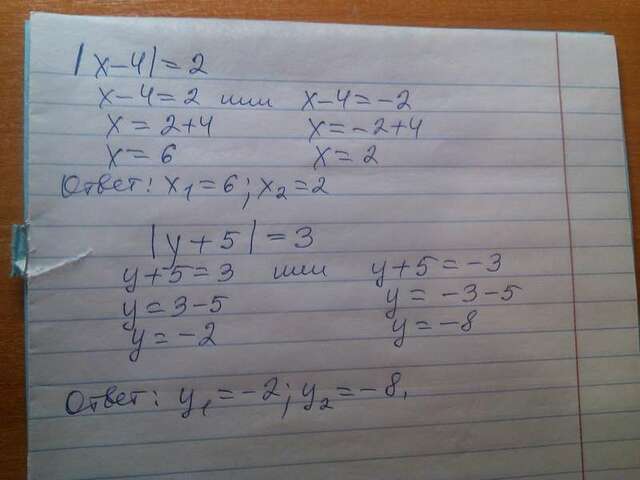 |x-4|=2
x-4=2 или x-4=-2
x=2+4 x=-2+4
x=6 x=2
Ответ: x₁=6; x₂=2
|y+5|=3
y+5=3 или y+5=-3
y=3-5 y=-3-5
y=-2 y=-8
Ответ: y₁=-2; y₂=-8.